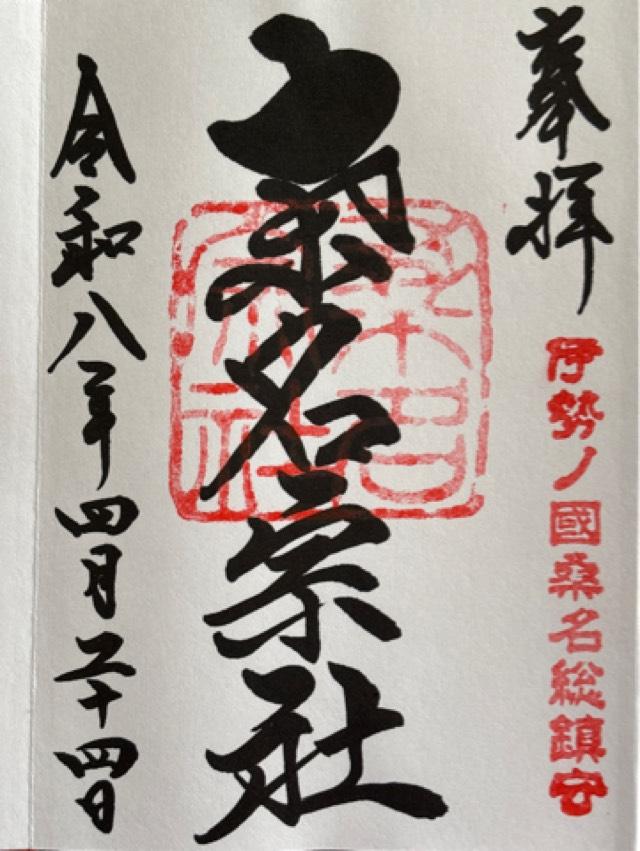 奉拝
伊勢ノ國桑名総鎮守
桑名宗社
桑名
宗社
令和八年四月二十四日